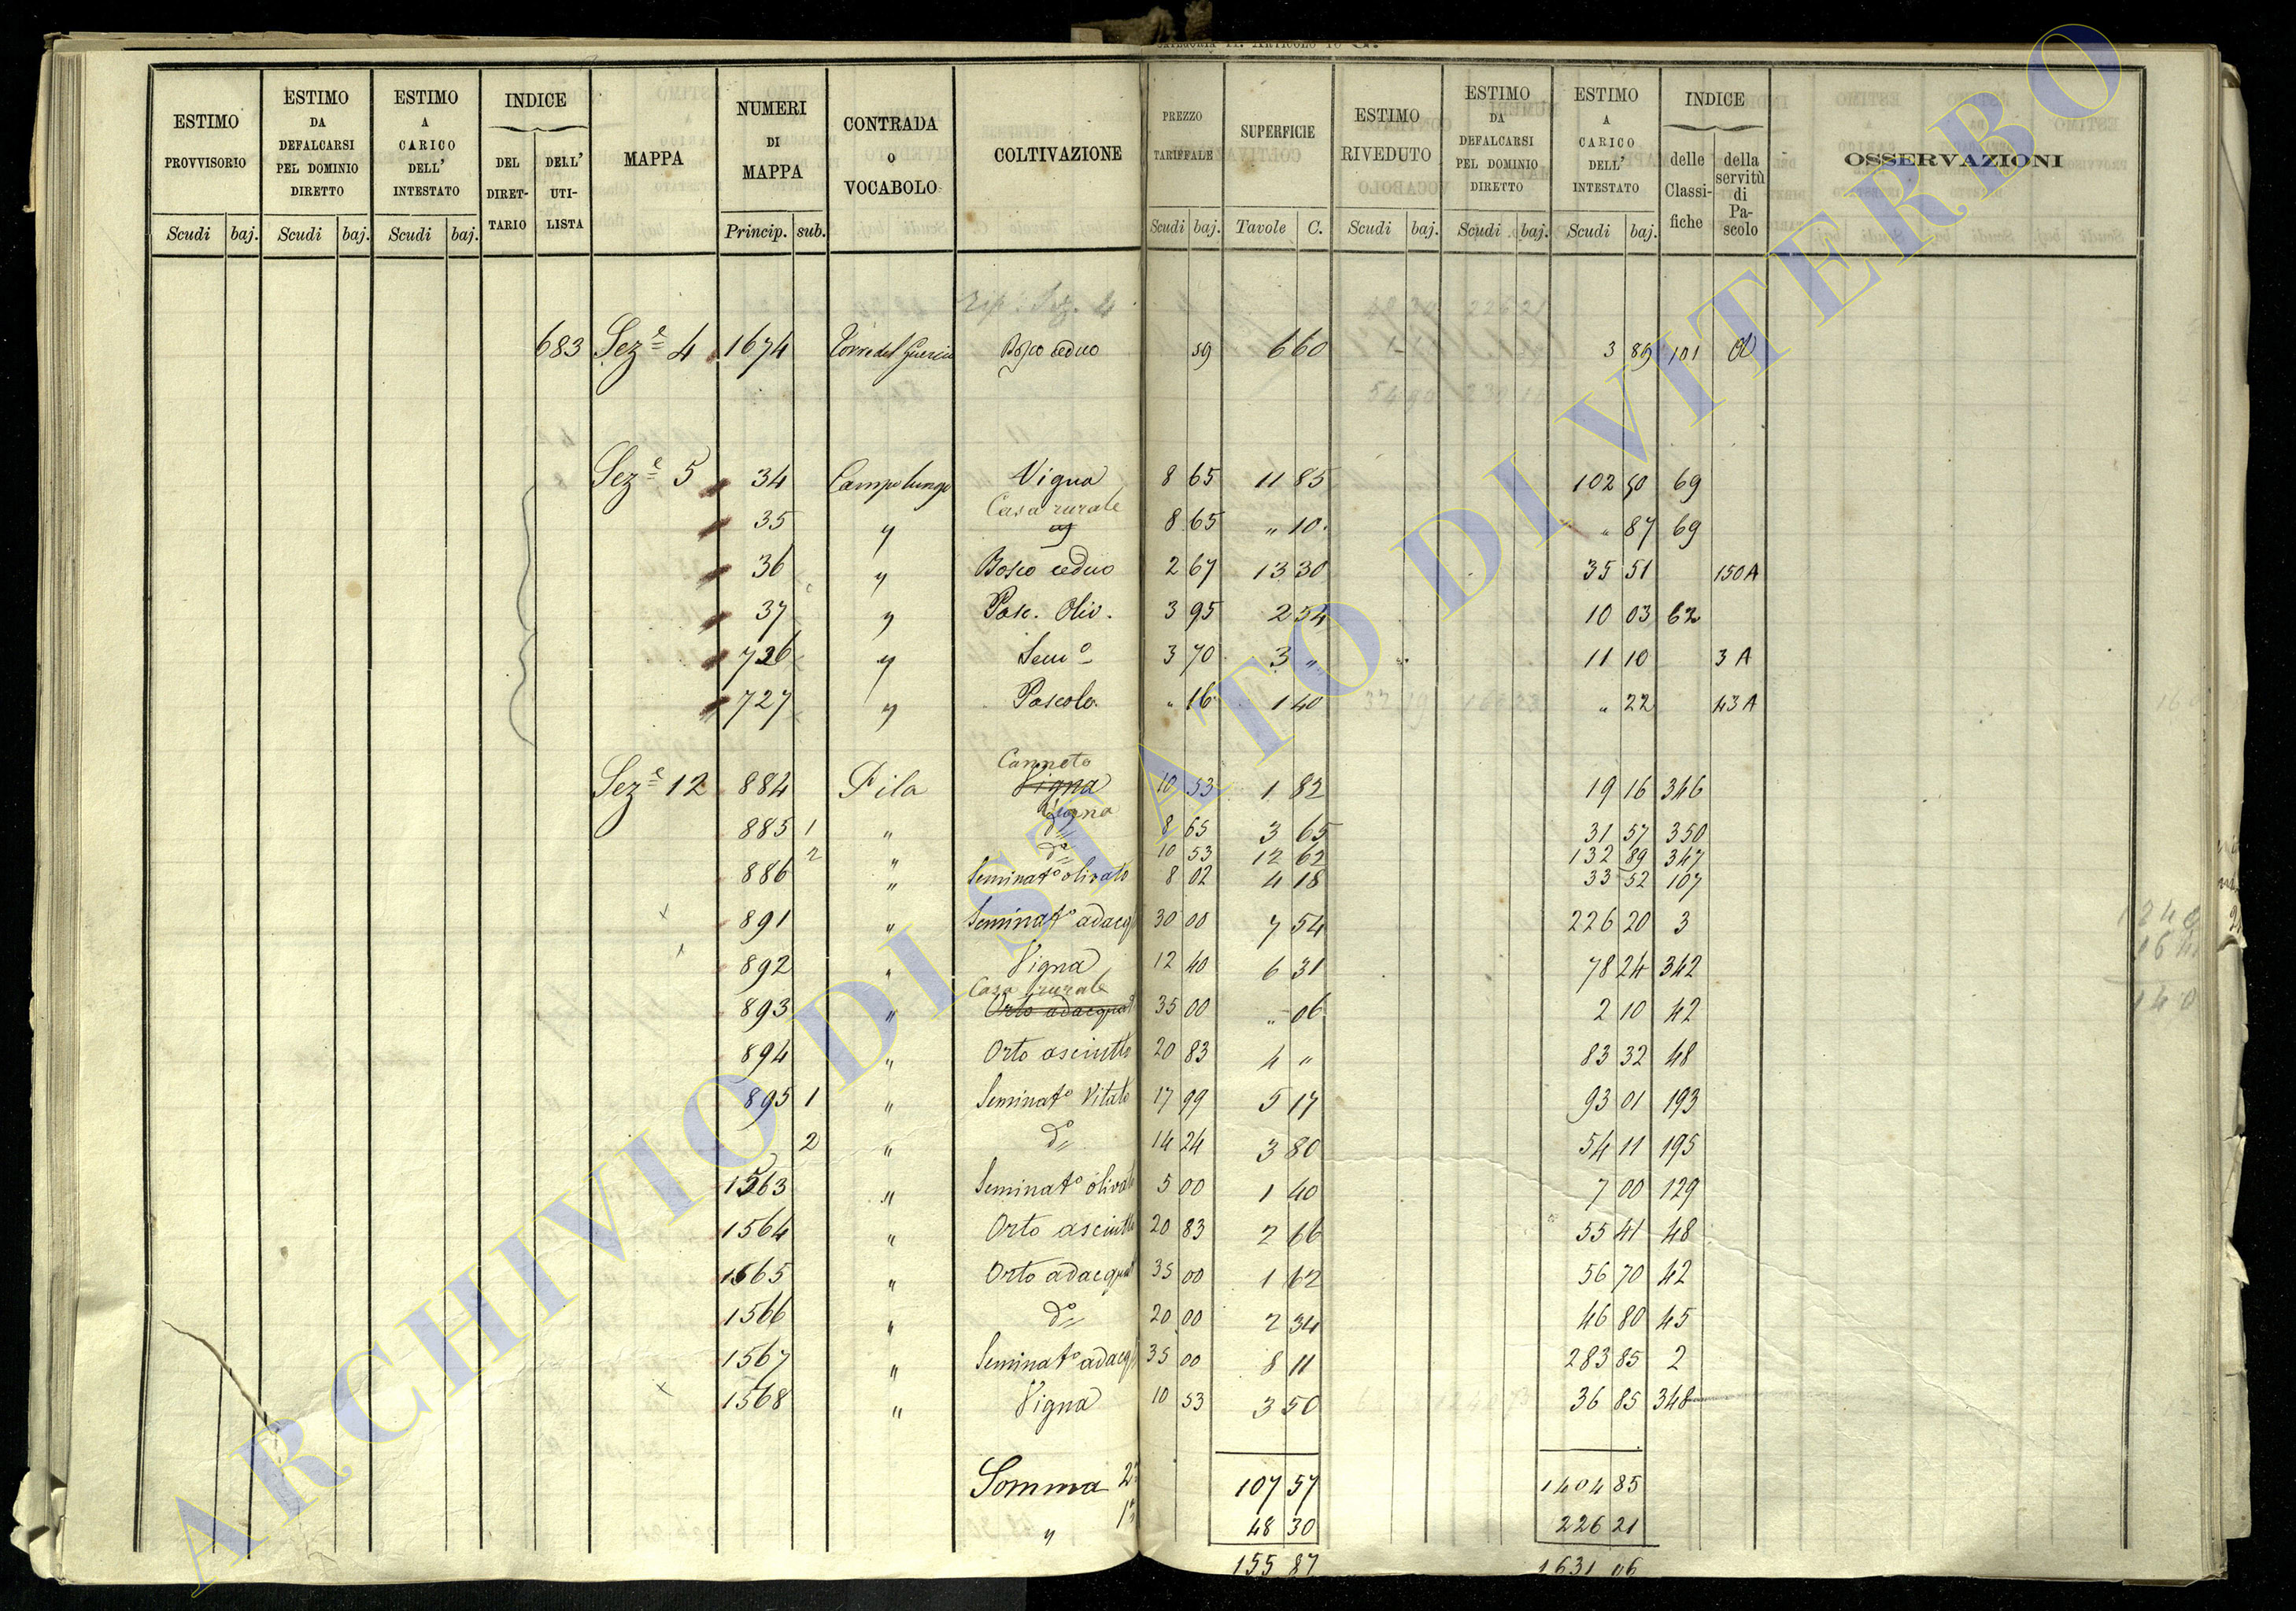 CATEGORIA II. ARTICOLO 10 G.
ESTIMO PROVVISORIO Scudi baj.
ESTIMO DA DEFALCARSI PEL DOMINIO DIRETTO Scudi baj.
ESTIMO A CARICO DELL' INTESTATO Scudi baj.
INDICE DEL DIRET-TARIO DELL' UTI-LISTA
MAPPA
NUMERI DI MAPPA Princip. sub.
CONTRADA O VOCABOLO
COLTIVAZIONE
PREZZO TARIFFALE Scudi baj.
SUPERFICIE Tavole C.
ESTIMO RIVEDUTO Scudi baj.
ESTIMO DA DEFALCARSI PEL DOMINIO DIRETTO Scudi baj.
ESTIMO A CARICO DELL' INTESTATO Scudi baj.
INDICE delle Classi-fiche della servitù di Pa-scolo
OSSERVAZIONI
683 Seze 4 1674 Torre del Bosco ceduo 59 6 60 3 89 101
Seze 5 34 Campo lungo Vigna 8 65 11 85 102 50 69
35 " Casa rurale 8 65 " 10 " 87 69
36 " Bosco ceduo 2 67 13 30 35 51 150 A
37 " Pasc. Oliv. 3 95 2 54 10 03 62
726 " Semo 3 70 3 " 11 10 3 A
727 " Pascolo " 16 1 40 " 22 43 A
Canneto
Seze 12 884 Pila Vigna 10 53 1 82 19 16 346
Vigna
885 1 " do 8 65 3 65 31 57 350
2 " do 10 53 12 62 132 89 347
886 " Seminato olivato 8 02 4 18 33 52 107
891 " Seminato adacq 30 00 7 54 226 20 3
892 " Vigna 12 40 6 31 78 24 342
Casa rurale
893 " Orto adacquat 35 00 " 06 2 10 42
894 " Orto asciutto 20 83 4 " 83 32 48
895 1 " Seminato Vitato 17 99 5 17 93 01 193
2 " do 14 24 3 80 54 11 195
1563 " Seminato olivato 5 00 1 40 7 00 129
1564 " Orto asciutto 20 83 2 66 55 41 48
1565 " Orto adacquat 35 00 1 62 56 70 42
1566 " do 20 00 2 34 46 80 45
1567 " Seminato adacq 35 00 8 11 283 85 2
1568 " Vigna 10 53 3 50 36 85 348
Somma 2a 107 57 1404 85
" 1a 48 30 226 21
155 87 1631 06
ARCHIVIO DI STATO DI VITERBO